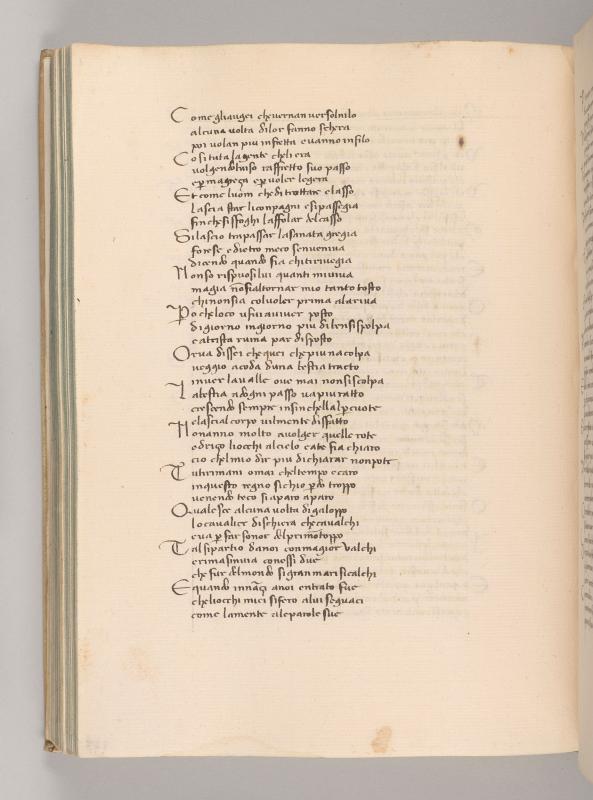 Come gliaugei chevernan versolnilo
alcuna volta dilor fanno schera
poi volan piu infretta evanno infilo
Cosi tuta lagente cheliera
volgendolviso raffretto suo passo
eper magreça epervoler legera
Et come luom che di trottare e lasso
lascia star licompagni esipassegia
finchesisfoghi laffolar delcasso
Silascio trapassar lasanata gregia
forese edietro meco senveniva
dicendo quando fia chitirivegia
Nonso rispuosilui quanti miviva
magia nõfialtornar mio tanto tosto
chinonsia colvoler prima alariva
Po cheloco ufui aviver posto
digiorno ingiorno piu dibensispolpa
eatrista ruina par disposto
Orva dissei chequei chepiunacolpa
veggio acoda duna bestia tracto
inver lavalle ove mai nonsiscolpa
Labestia adogni passo vapiuratto
crescendo sempre infinchella il percuote
elascialcorpo vilmente disfatto
Nonanno molto avolger quelle rote
edriço liocchi alcielo cate fia chiaro
cio chelmio dir piu dichiarar nonpote
Tutirimani omai cheltempo ecaro
inquesto regno sichio perdo troppo
venendo teco si aparo aparo
Qualesce alcuna volta digaloppo
locavalier dischiera checavalchi
eva per farsonor delprimotoppo
Talsipartio danoi conmagior valchi
erimasinvia conessi due
che fur delmondo sigran marisicalchi
Equando innãçi anoi entrato fue
cheliocchi miei sifero alui seguaci
come lamente aleparole sue